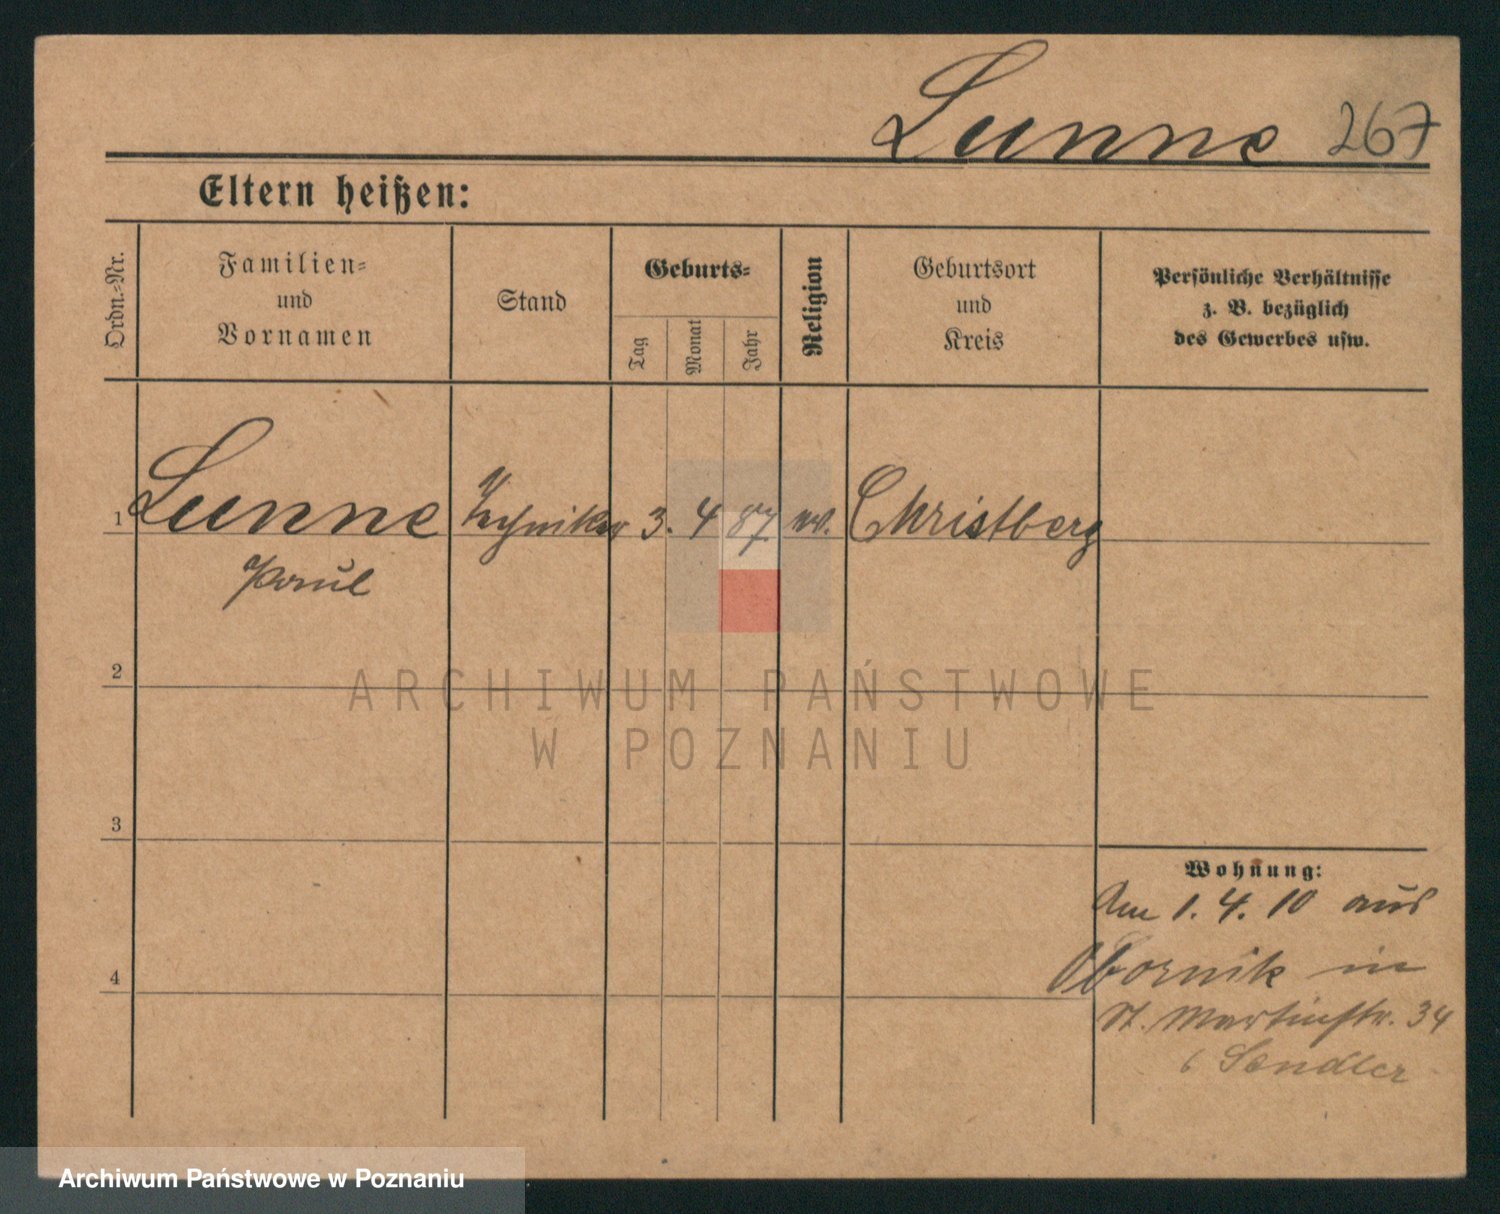 Lunne 267
Eltern heißen:
Ordn.-Nr.
Familien-
und
Vornamen
Stand
Geburts-
Tag
Monat
Jahr
Religion
Geburtsort
und
Kreis
Persönliche Verhältnisse
z. B. bezüglich
des Gewerbes usw.
1 Lunne Techniker 3. 4 87 ev. Christberg
Paul
2
ARCHIWUM PAŃSTWOWE
W POZNANIU
3
Wohnung:
Am 1. 4. 10 aus
4 Obornik in
St. Martinstr. 34
b Sandler
Archiwum Państwowe w Poznaniu